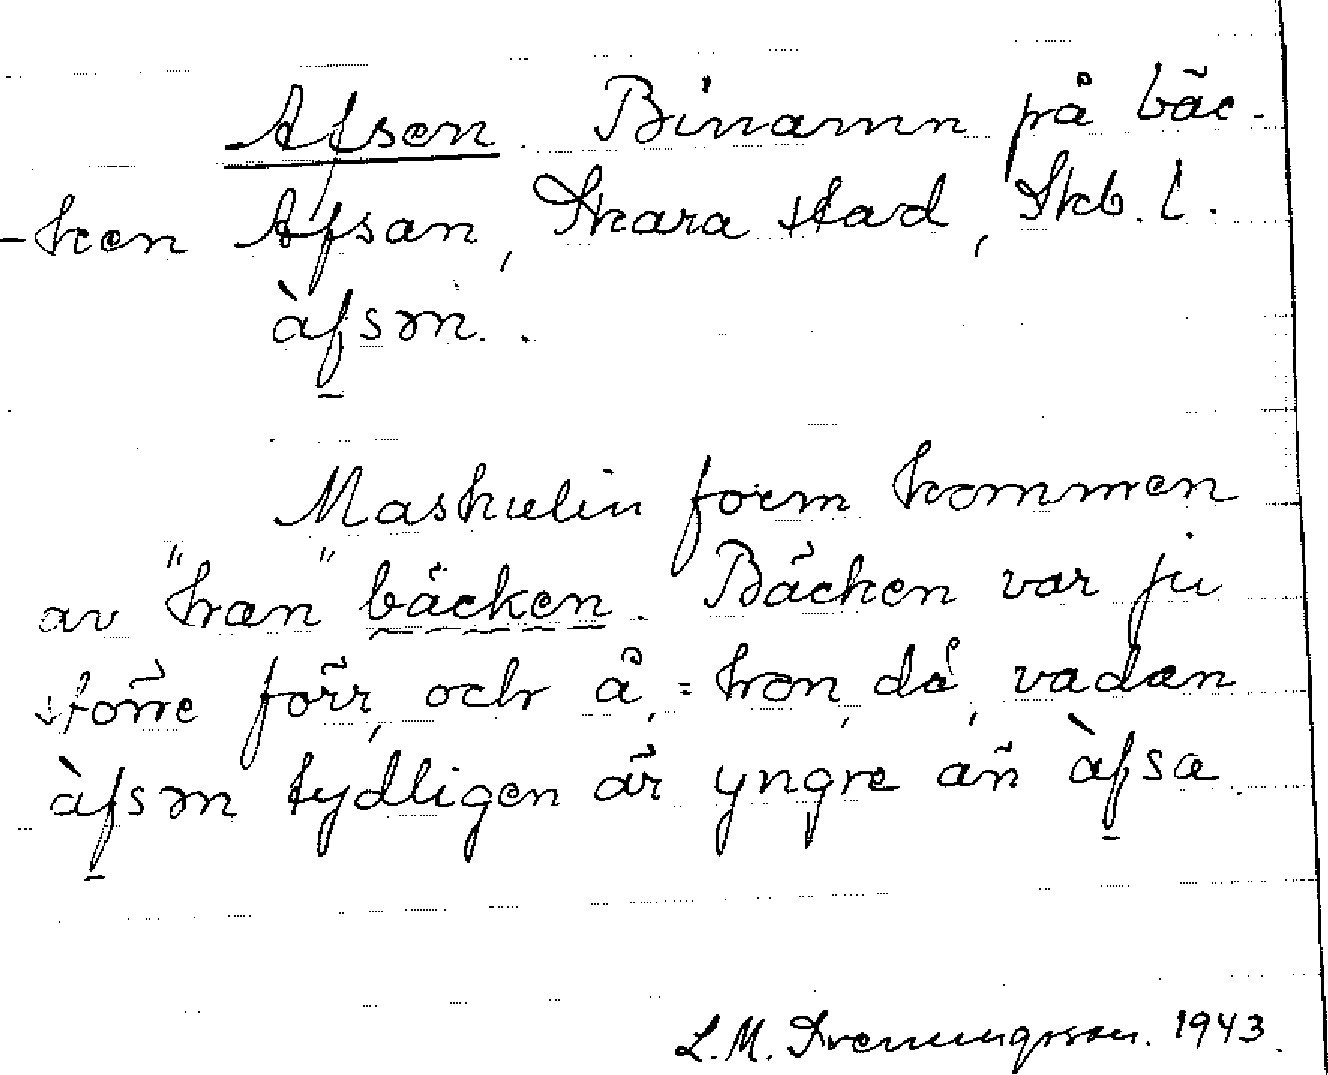 Afsen. Binamn på bäc-
-ken Afsan, Skara stad, Skb. l.
àfsən.
Maskulin form kommen
av "hran" bäcken. Bäcken var ju
större förr, och å, = hon, då, vadan
àfsən tydligen är yngre än àfsa.
L.M. 1943.